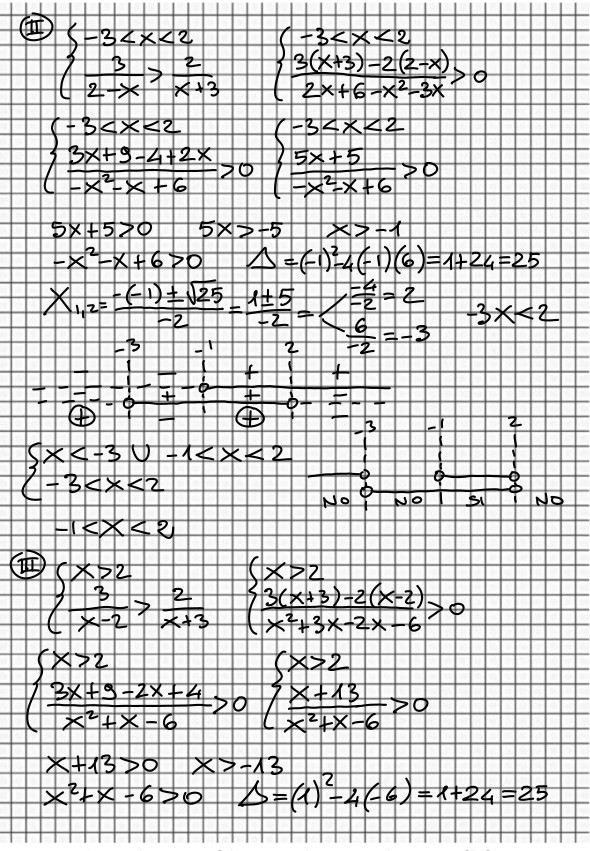 II { -3<x<2 { -3<x<2
3/(2-x) > 2/(x+3) (3(x+3)-2(2-x))/(2x+6-x²-3x) > 0
{ -3<x<2 { -3<x<2
(3x+9-4+2x)/(-x²-x+6) > 0 (5x+5)/(-x²-x+6) > 0
5x+5>0 5x>-5 x>-1
-x²-x+6>0 Δ=(-1)²-4(-1)(6)=1+24=25
X₁,₂ = (-(-1)±√25)/-2 = (1±5)/-2 = < -4/-2 = 2
6/-2 = -3 -3x<2
-3 -1 2
- - + +
- + + -
+ - +
{ x<-3 ∪ -1<x<2
-3<x<2
-3 -1 2
NO NO SI NO
-1<x<2
III { x>2 { x>2
3/(x-2) > 2/(x+3) (3(x+3)-2(x-2))/(x²+3x-2x-6) > 0
{ x>2 { x>2
(3x+9-2x+4)/(x²+x-6) > 0 (x+13)/(x²+x-6) > 0
x+13>0 x>-13
x²+x-6>0 Δ=(1)²-4(-6)=1+24=25